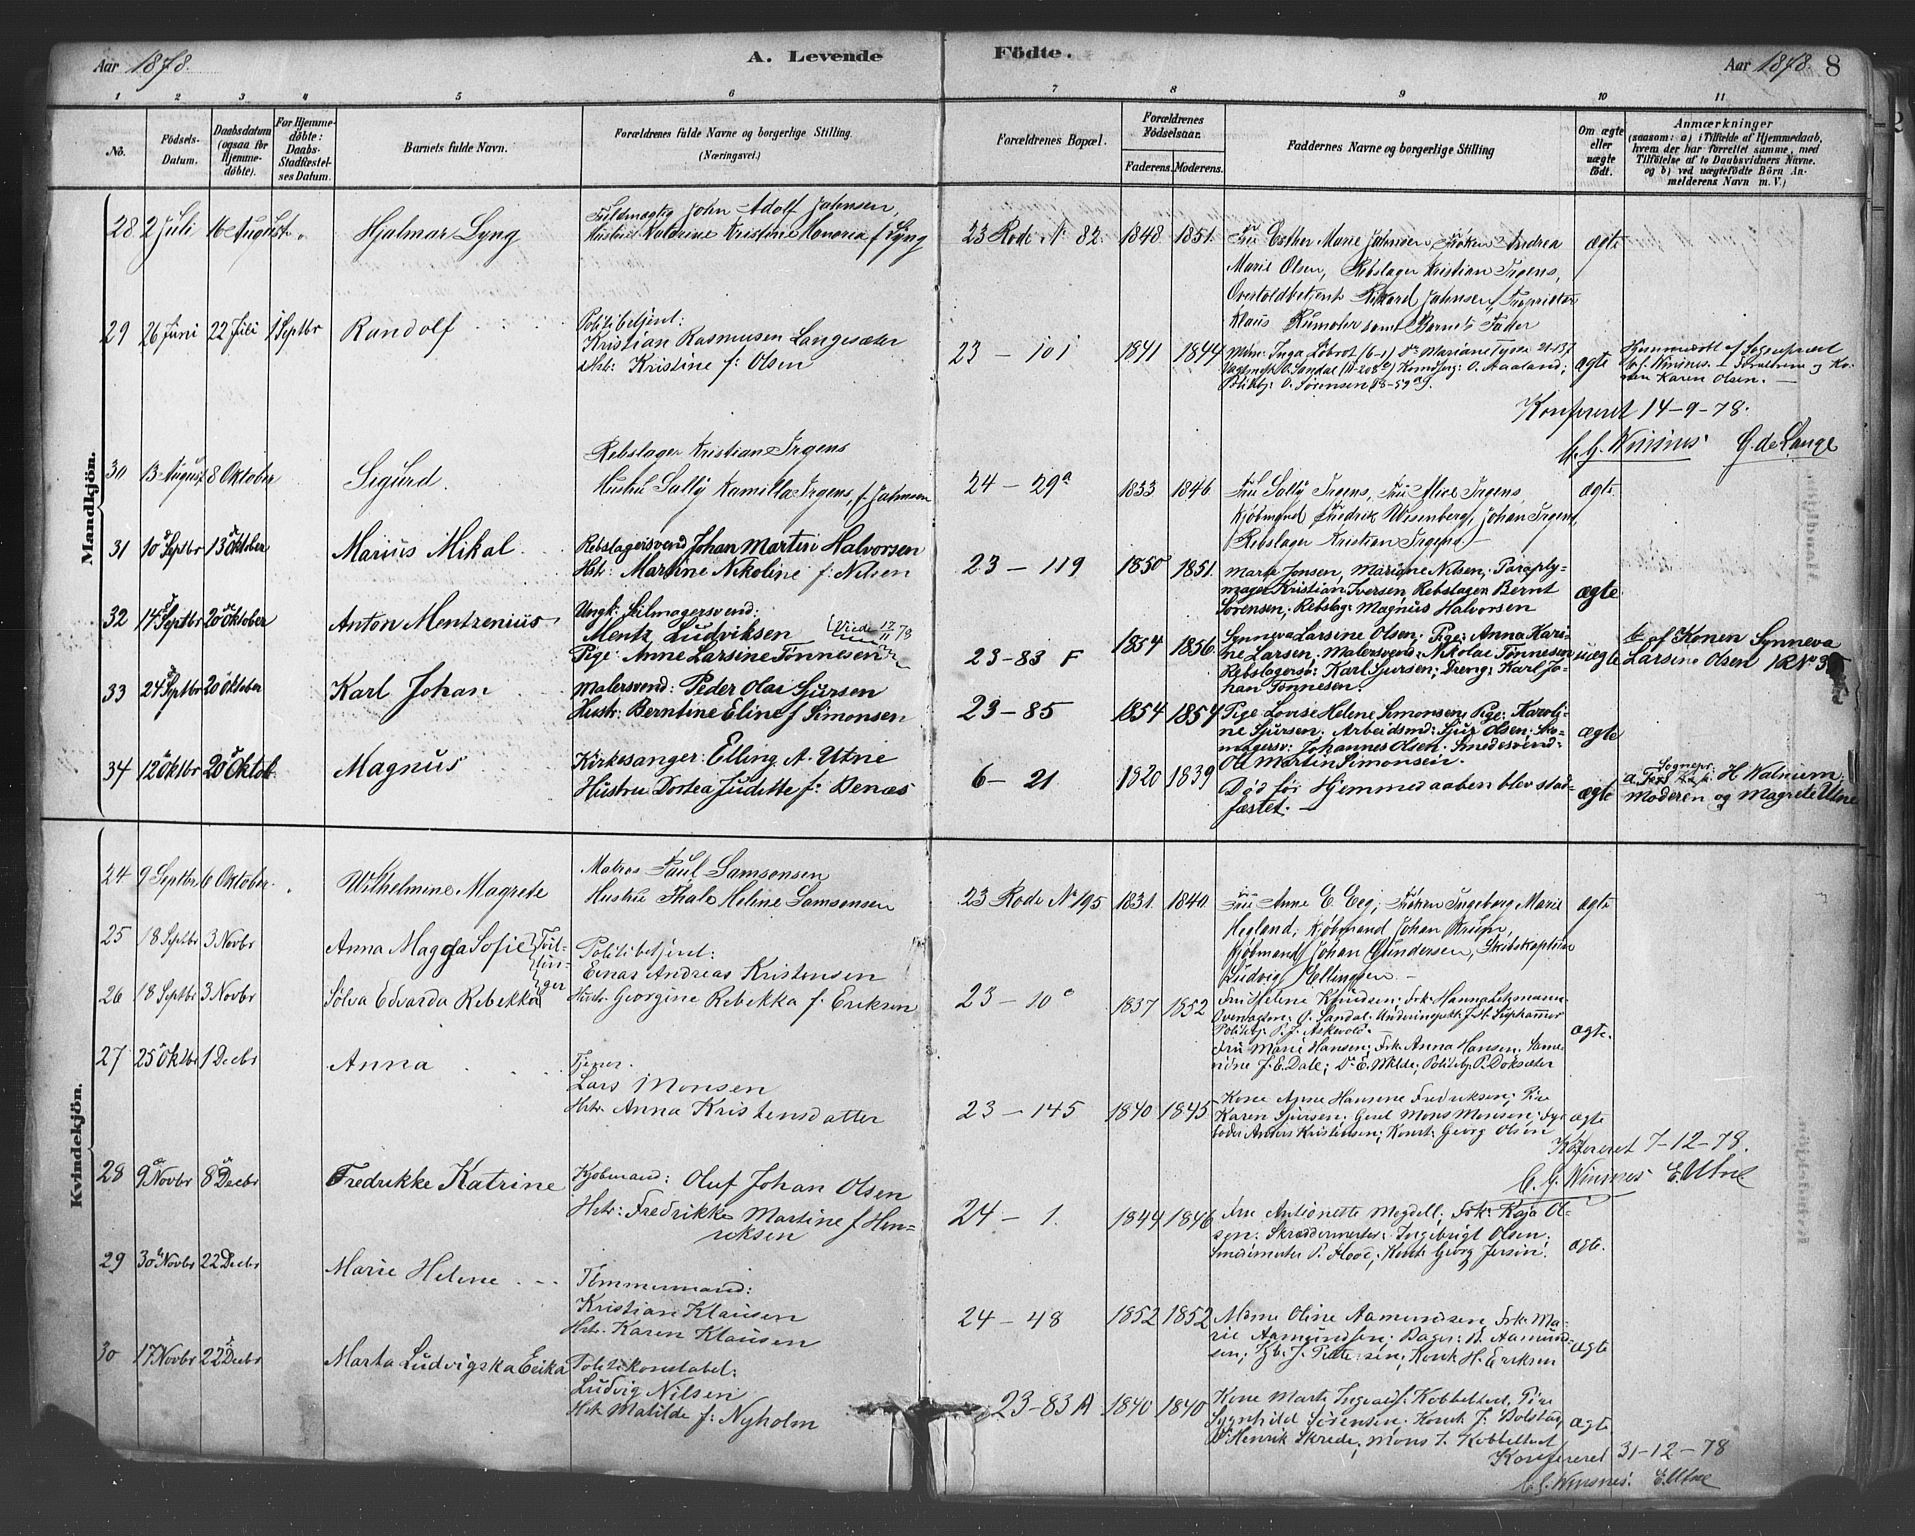 Aar 1878.
A. Levende Födte.
Aar 1878. 8
1 2 3 4 5 6 7 8 9 10 11
No.
Födsels-Datum.
Daabsdatum (ogsaa for Hjemme-døbte).
For Hjemme-døbte: Daabs-Stadfæstel-ses Datum.
Barnets fulde Navn.
Forældrenes fulde Navne og borgerlige Stilling.
(Næringsvei.)
Forældrenes Bopæl.
Forældrenes Födselsaar.
Faderens. Moderens.
Faddernes Navne og borgerlige Stilling
Om ægte eller uægte födt.
Anmærkninger
(saasom: a) i Tilfælde af Hjemmedaab, hvem der har forrettet samme, med Tilföielse af to Daabsvidners Navne. og b) ved uægtefödte Börn Anmelderens Navn m. V.)
Mandkjön.
28 2 Juli 16 August Hjalmar Lyng
Fuldmægtig John Adolf Jahnsen,
Hustru Katarine Kristine Honoria f. Lyng
23 Rode No 82. 1848. 1851.
Fru Esther Marie Jahnsen, Frøken Andrea
Marie Olsen, Rebslager Kristian Irgens,
Overtoldbetjent Rikard Jahnsen, Proprietær
Klaus Rumohr samt Barnets Fader
ægte
29 26 Juni 22 Juli 1 Septbr Randolf
Politibetjent:
Kristian Rasmusen Langesæter
Hstr: Kristine f: Olsen
23 - 101 1841 1844
ægte
Hjemmedøbt af Sogneprest
Karen Olsen.
Konfereret 14-9-78.
C. G. Winsnes G. de Lange
30 13 August 8 Oktober Sigurd
Rebslager Kristian Irgens
Hustru Sally Kamilla Irgens, f. Jahnsen
24 - 29a 1833 1846
Fru Sally Irgens, Fru Alice Irgens,
Kjøbmand Fredrik Wesenberg, Johan Irgens,
Rebslager Kristian Irgens.
ægte
31 10 Septbr 13 Oktober Marius Mikal
Rebslagersvend Johan Martin Halvorsen
Hstr: Martine Nikoline f: Nilsen
23 - 119 1850 1851.
Marta Jonsen, Mariane Nilsen, Paraply-
mager Kristian Iversen Rebslager Bernt
Sørensen, Rebslag: Magnus Halvorsen
ægte
32 14 Septbr 20 Oktober Anton Mentzenius
Ungk: Seilmagersvend:
Mentz Ludviksen (Vide 12/11 78
Pige: Anne Larsine Tønnesen
23-83 F 1854 1856
Synneva Larsine Olsen. Pige: Anna Kari-
ne Larsen, Malersvend: Nikolai Tønnesen
Rebslagersv: Karl Sjursen; Dreng: Karl Jo-
han Tønnesen.
uægte
b af Konen Synneva
Larsine Olsen
33 24 Septbr 20 Oktober Karl Johan
Malersvend: Peder Olai Sjursen
Hustr: Berntine Eline f Simonsen
23-85 1854 1854
Pige Lovise Helene Simonsen, Pige: Karoli-
ne Sjursen. Arbeidsmd: Sjur Olsen. Sko-
magersv: Johannes Olsen. Smedesvend:
Ole Martin Simonsen.
ægte
34 12 Oktbr 20 Oktob. Magnus
Kirkesanger: Elling A. Utne
Hustru Dortea Juditte f: Denæs
6 - 21 1820 1839
Død før Hjemmedaaben blev stad-
fæstet.
ægte
a. Sognepr. H. Walnum.
Moderen og Magrete Utne
Kvindekjön.
24 9 Septbr 6 Oktober. Wilhelmine Magrete
Matros Paul Samsonsen
Hustru Thale Helene Samsonsen
23 Rode No 195 1831. 1840.
Fru Anne E. Eeg, Frøken Ingeborg Marie
Hegland, Kjøbmand Johan Krum,
Kjøbmand Johan Gundersen, Skibskaptein
Ludvig Ellingsen
ægte
25 18 Septbr 3 Novbr Anna Magda Sofie
26 18 Septbr 3 Novbr Solva Edvarda Rebekka
Tvillinger
Politibetjent:
Einas Andreas Kristensen
Hustr: Georgine Rebekka f. Eriksen
23 - 10c 1837 1852
Fru Helene Knudsen. Frk: Hanna Letzmann
Politibtj. P. J. Askevold.
Fru Marie Hansen, Frk. Anna Hansen.
J. E. Dale; Politibtj. P. Doksæter
ægte.
27 25 Oktbr 1 Decbr Anna
Tjener.
Lars Monsen
Hstr. Anna Kristensdatter
23 - 145 1840 1845
Kone Anne Hansine Fredriksen; Pige
Karen Sjursen. Gesel Mons Monsen.
Anders Kristensen; Kont: Georg Olsen
ægte
Konfereret 7-12-78.
C. G. Winsnes E. Utne
28 9 Novbr 8 Decbr Fredrikke Katrine
Kjøbmand: Oluf Johan Olsen
Hstr: Fredrikke Martine f Hen-
riksen
24 - 1. 1844 1846
Fru Antonette Megdell, Frk: Kaja Ol-
sen. Skræddermester: Ingebrigt Olsen.
Smedmester P. Flood, Kont: Georg Jersin.
ægte.
29 30 Novbr 22 Decbr Marie Helene
Tømmermand:
Kristian Klausen
Hstr. Karen Klausen
24 - 48 1852 1852
Mme Oline Aamundsen, Frk: Ma-
rie Aamundsen. Bager: Aamund-
sen; J. Pettersen, Kontr H. Eriksen
ægte
30 17 Novbr 22 Decbr Marta Ludvigska Erika
Politikonstabel:
Ludvig Nilsen
Hstr Matilde f: Nyholm
23-83 A 1840 1840
Kone Marta Kobbeltvedt, Pige
Sygnhild Sørensen. Konst J. Bolstad,
Do Henrik Skrede, Mons J. Kobbeltvedt
ægte
Konfereret 31-12-78
C. G. Winsnes. E. Utne